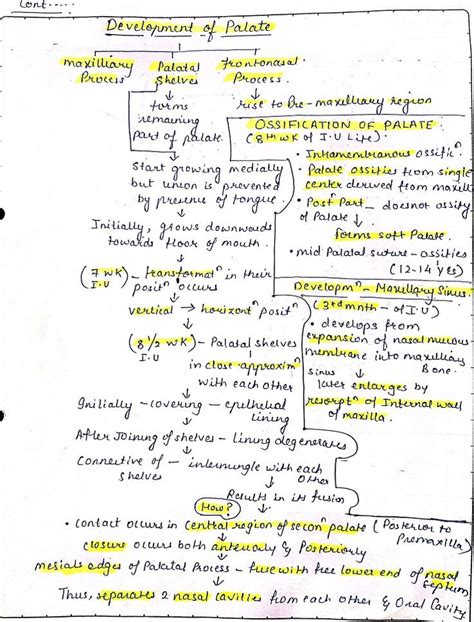 Cont.....
Development of Palate
maxilliary Process
Palatal Shelves
frontonasal Process
forms remaining part of palate
rise to Pre-maxilleary region
Start growing medially
but union is prevented
by presence of tongue
Initially, grows downwards
towards floor of mouth.
(7 WK) - transformatn in their
I.U
positn occurs
vertical → horizontn positn
(8 1/2 WK) - Palatal shelves
I.U
in close approximn
with each other
Initially - covering - epithelial
lining
After Joining of shelves - lining degenerates
Connective of - intermingle with each
shelves
other
Results in its fusion
How?
• Contact occurs in central region of seconn palate (Posterior to
Premaxilla)
closure occurs both anteriorly & Posteriorly
mesial edges of Palatal Process - fuse with free lower end of nasal
septum
Thus, separates 2 nasal cavities from each other & Oral Cavity.
OSSIFICATION OF PALATE
(8th WK of I.U Life)
• Intramembranous ossificn.
• Palate ossifies from single
center derived from maxill
• Postn Part - doesnot ossify
of Palate
forms soft Palate.
• mid Palatal suture - ossifies
(12-14 yes)
Developmn - Maxillary Sinus.
(3rd mnth - of I.U)
• develops from
expansion of nasal mucous
membrane into maxillary
Bone.
sinus
later enlarges by
resorptn of Internal wall
of maxilla.